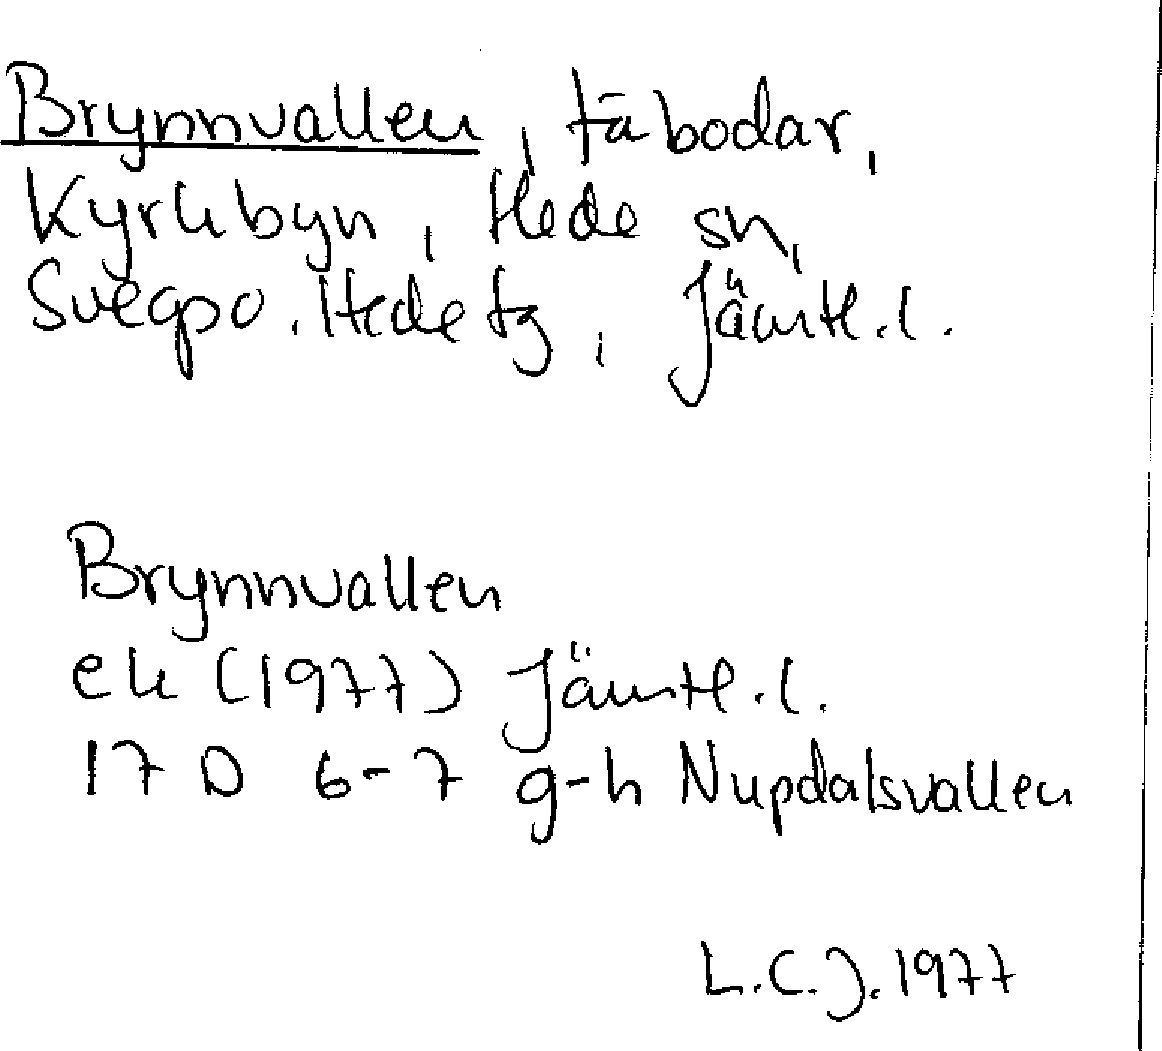 Brynnvallen, fäbodar,
Kyrkbyn, Hede sn,
Svegpo. Hede tg, Jämtl.l.
Brynnvallen
ek (1977) Jämtl.l.
17 D 6-7 g-h Nupdalsvallen
L.C.J. 1977